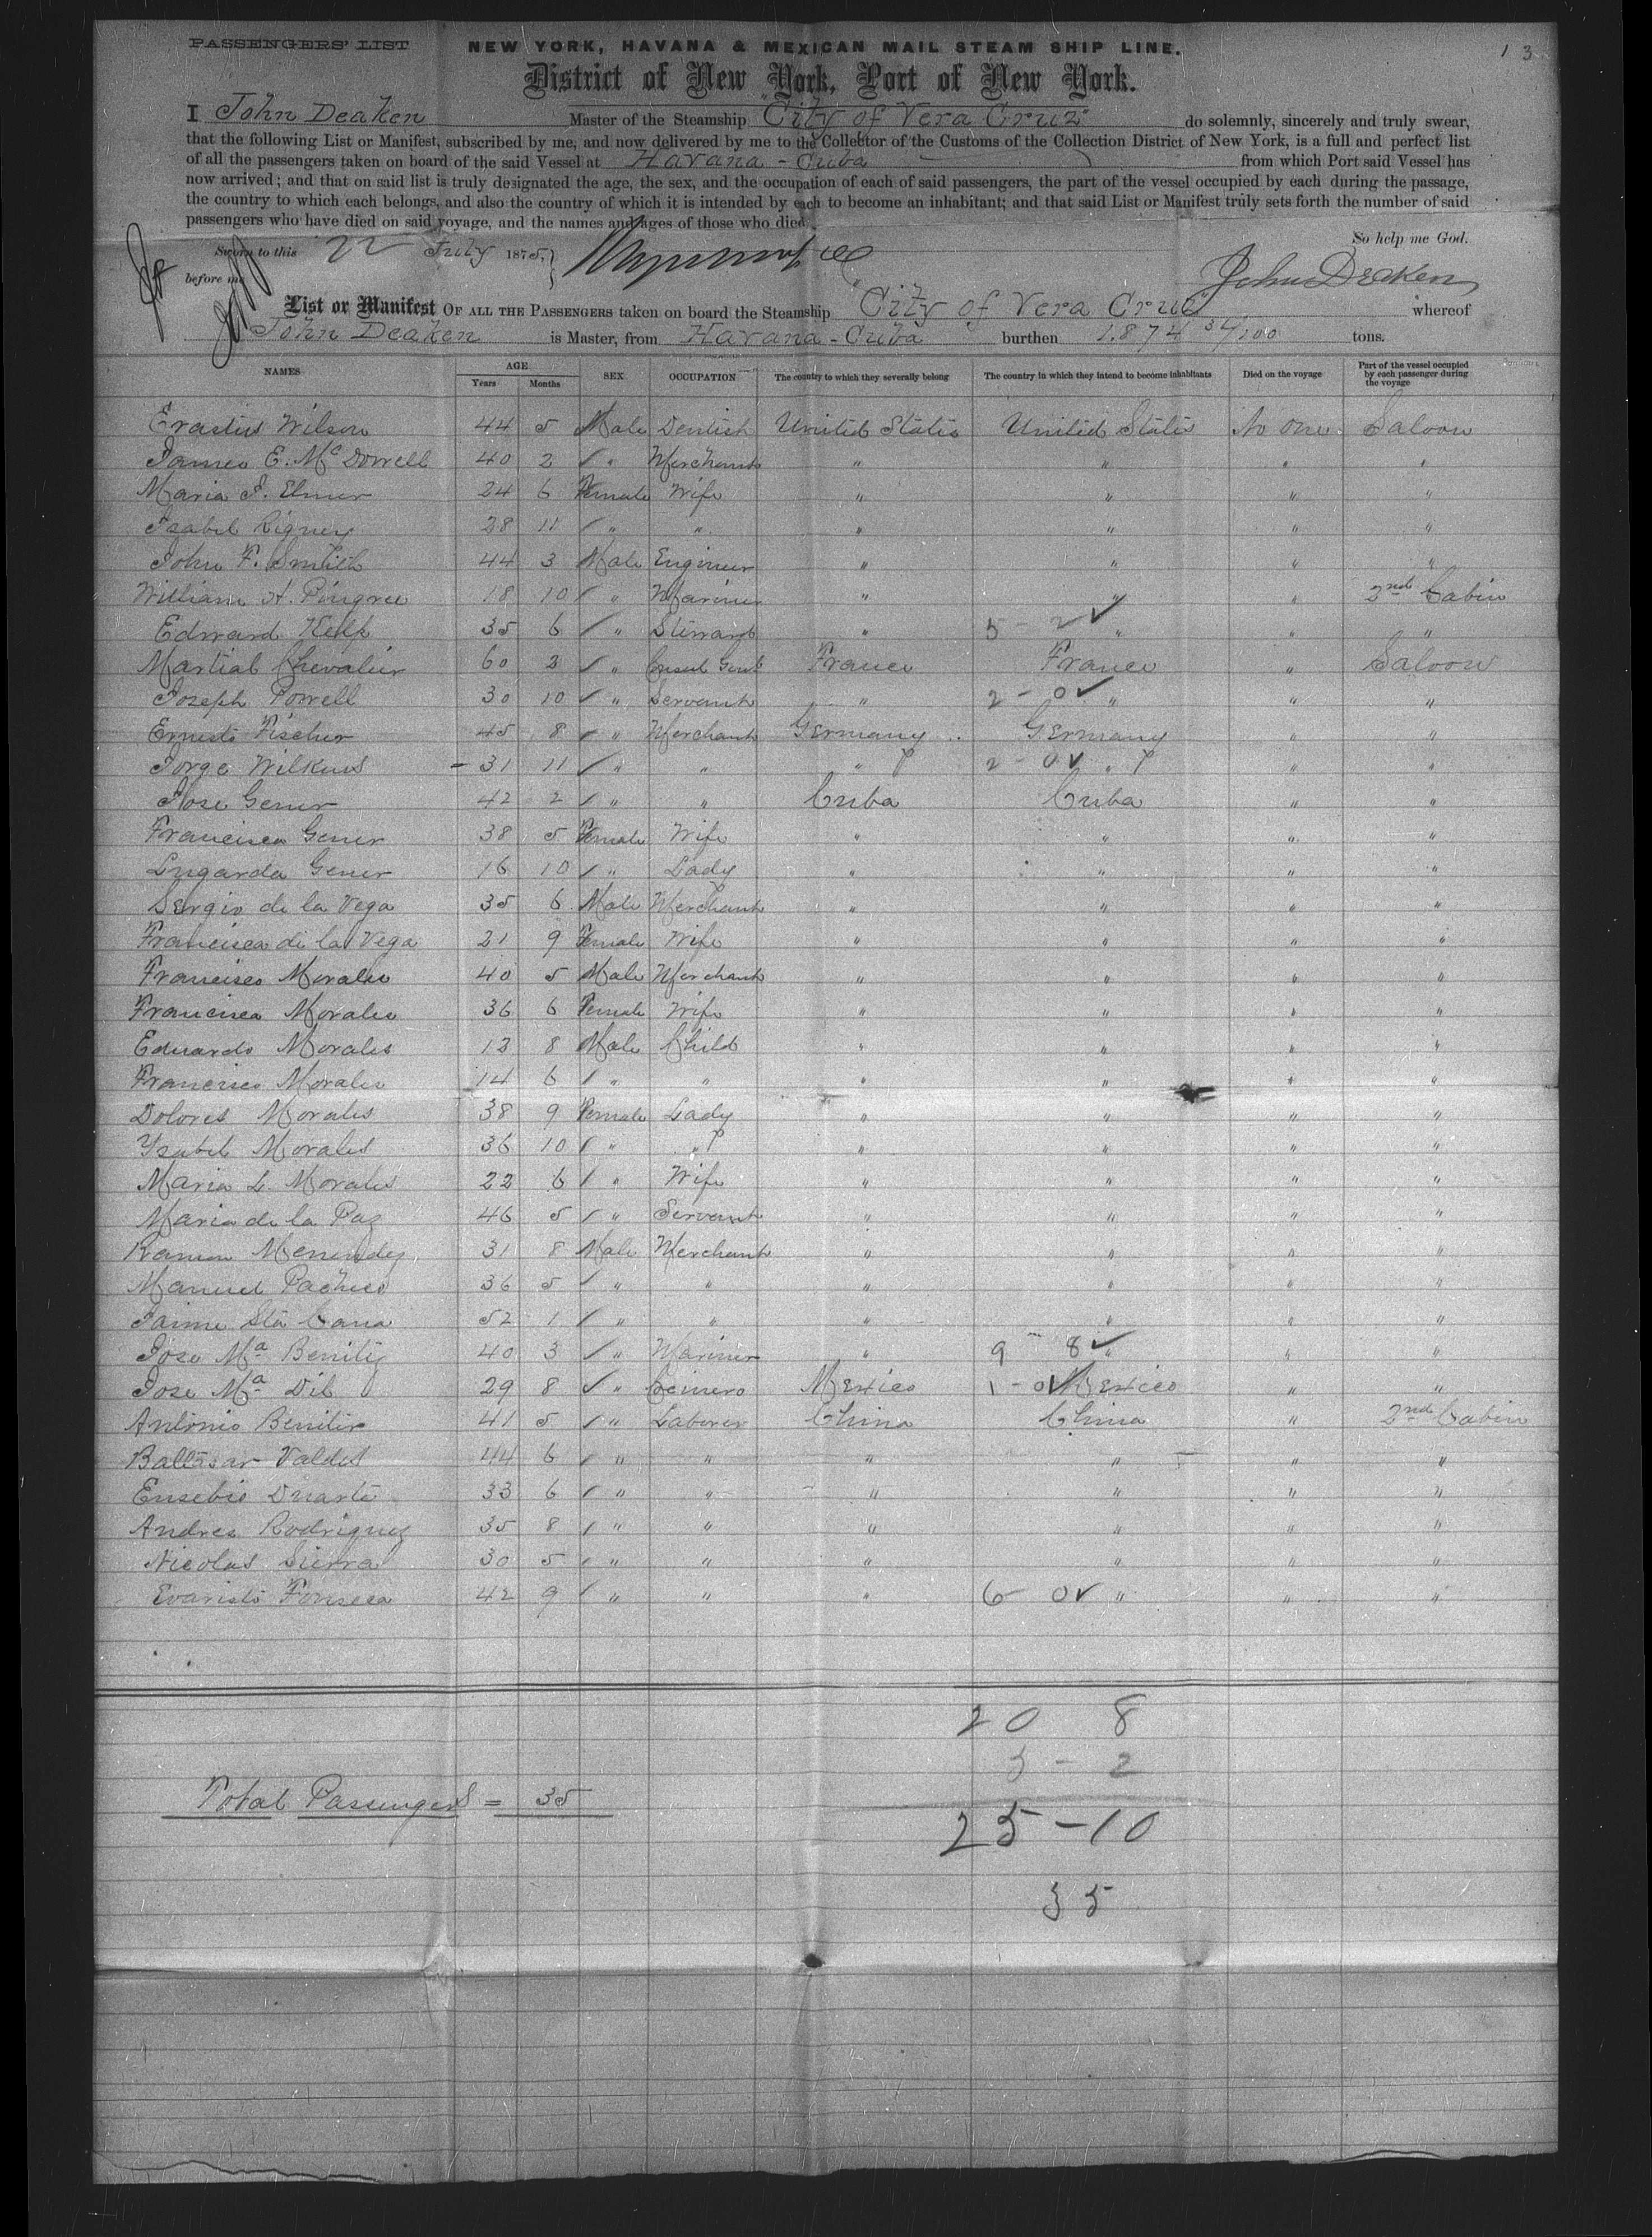 PASSENGERS' LIST
NEW YORK, HAVANA & MEXICAN MAIL STEAM SHIP LINE.
1 3
District of New York, Port of New York.
I John Deaken Master of the Steamship "City of Vera Cruz" do solemnly, sincerely and truly swear,
that the following List or Manifest, subscribed by me, and now delivered by me to the Collector of the Customs of the Collection District of New York, is a full and perfect list
of all the passengers taken on board of the said Vessel at Havana - Cuba from which Port said Vessel has
now arrived; and that on said list is truly designated the age, the sex, and the occupation of each of said passengers, the part of the vessel occupied by each during the passage,
the country to which each belongs, and also the country of which it is intended by each to become an inhabitant; and that said List or Manifest truly sets forth the number of said
passengers who have died on said voyage, and the names and ages of those who died.
So help me God.
Sworn to this 22 July 1875,
before me
John Deaken
List or Manifest OF ALL THE PASSENGERS taken on board the Steamship "City of Vera Cruz" whereof
John Deaken is Master, from Havana - Cuba burthen 1.874 34/100 tons.
NAMES AGE Years Months SEX OCCUPATION The country to which they severally belong The country in which they intend to become inhabitants Died on the voyage Part of the vessel occupied by each passenger during the voyage
Erastus Wilson 44 5 Male Dentist United States United States No one Saloon
James E. McDowell 40 2 " Merchant " " " "
Maria J. Elmer 24 6 Female Wife " " " "
Isabel Rigney 28 11 " " " " " "
John F. Smith 44 3 Male Engineer " " " "
William H. Pingree 18 10 " Mariner " " " 2nd Cabin
Edward Kelp 35 6 " Steward " 5 - 2 ✓ " " "
Martial Chevalier 60 2 " Consul Genl France France " Saloon
Joseph Powell 30 10 ✓ " Servant " 2 - 0 ✓ " " "
Ernesto Fischer 45 8 " Merchant Germany Germany " "
Jorge Wilkens - 31 11 " " " 2 - 0 ✓ " " "
Jose Gener 42 2 " " Cuba Cuba " "
Francisca Gener 38 5 Female Wife " " " "
Lugarda Gener 16 10 " Lady " " " "
Sergio de la Vega 35 6 Male Merchant " " " "
Francisca de la Vega 21 9 Female Wife " " " "
Francisco Morales 40 5 Male Merchant " " " "
Francisca Morales 36 6 Female Wife " " " "
Eduardo Morales 12 8 Male Child " " " "
Francisco Morales 14 6 " " " " " "
Dolores Morales 38 9 Female Lady " " " "
Ysabel Morales 36 10 " " " " " "
Maria L. Morales 22 6 " Wife " " " "
Maria de la Paz 46 5 " Servant " " " "
Ramon Menendez 31 8 Male Merchant " " " "
Manuel Pacheco 36 5 " " " " " "
Jaime Sta Cana 52 1 " " " " " "
Jose Ma Benitez 40 3 " Mariner " 9 - 8 ✓ " " "
Jose Ma Dil 29 8 " Cocinero Mexico 1 - 0 ✓ Mexico " "
Antonio Benitez 41 5 " Laborer China China " 2nd Cabin
Baltasar Valdes 44 6 " " " " " "
Eusebio Duarte 33 6 " " " " " "
Andres Rodriguez 35 8 " " " " " "
Nicolas Sierra 30 5 " " " " " "
Evaristo Fonseca 42 9 " " " 6 - 0 ✓ " " "
20 8
5 - 2
Total Passengers = 35
25 - 10
35